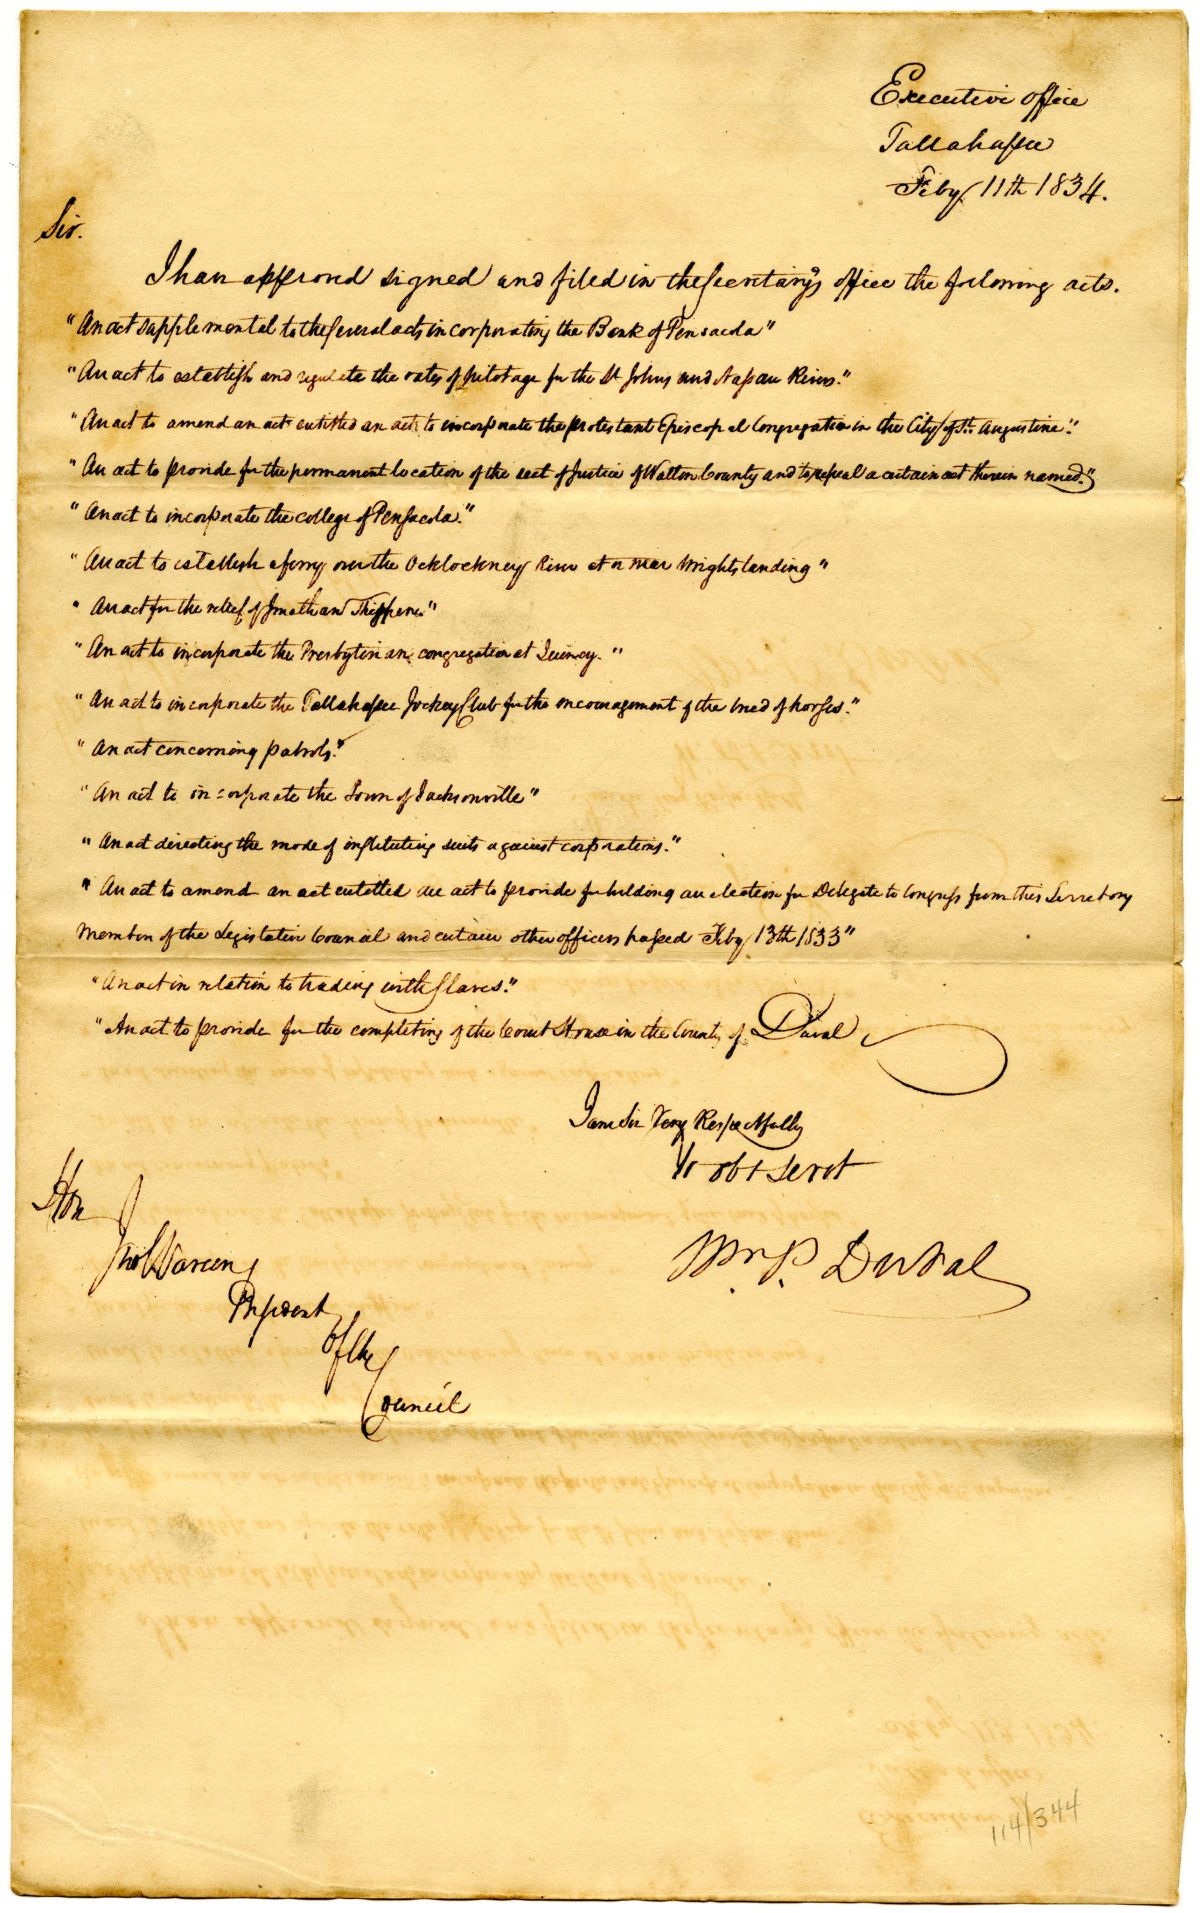 Executive office
Tallahassee
Feby 11th 1834.
Sir.
I have approved signed and filed in the Secretary's office the following acts.
"An act supplemental to the several acts incorporating the Bank of Pensacola"
"An act to establish and regulate the rates of pilotage for the St Johns and Nassau Rivers."
"An act to amend an act entitled an act to incorporate the protestant Episcopal Congregation in the City of St. Augustine."
"An act to provide for the permanent location of the seat of Justice of Walton County and to repeal a certain act therein named."
"An act to incorporate the college of Pensacola."
"An act to establish a ferry over the Ocklockney River at or near Wrights landing"
"An act for the relief of Jonathan Thigpen."
"An act to incorporate the Presbyterian congregation at Quincy."
"An act to incorporate the Tallahassee Jockey Club for the encouragement of the breed of horses."
"An act concerning patrols."
"An act to in=corporate the Town of Jacksonville"
"An act directing the mode of instituting suits against corporations."
"An act to amend an act entitled an act to provide for holding an election for Delegate to Congress from this Territory
Members of the Legislative Council and certain other officers passed Feby 13th 1833"
"An act in relation to trading with slaves."
"An act to provide for the completing of the Court House in the County of Duval
I am Sir Very Respectfully
Yr obt Servt
Wm. P. DuVal
Hon
Jno Warren
President
of the
Council
114/344